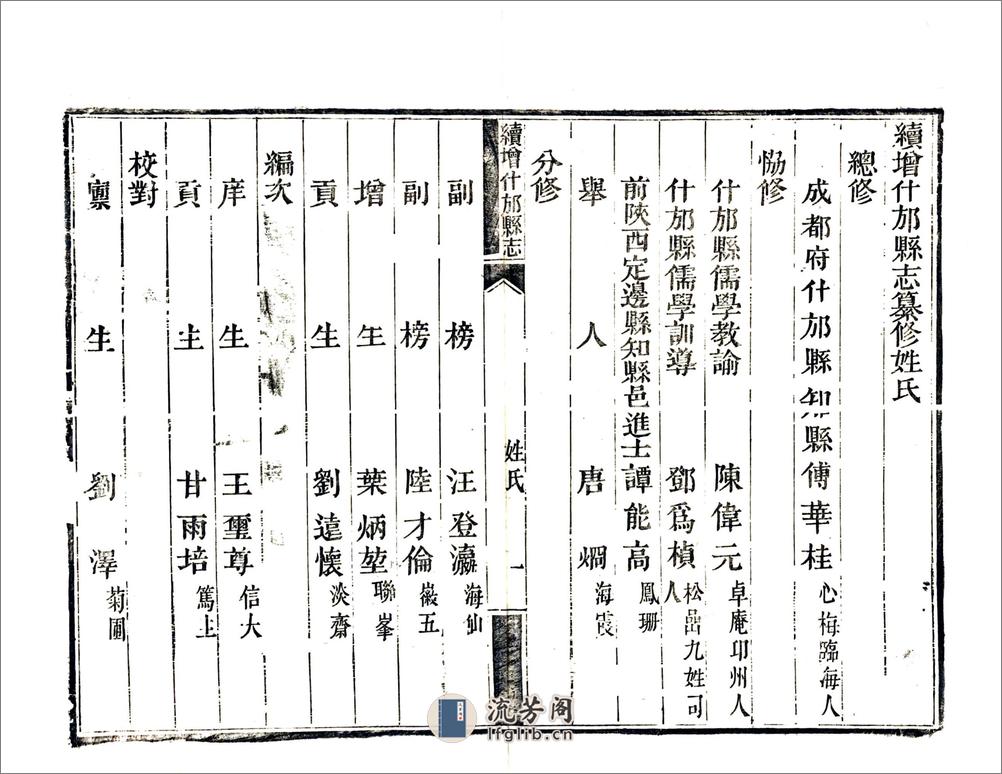 續增什邡縣志纂修姓氏
總修
成都府什邡縣知縣傅華桂 心梅臨海人
協修
什邡縣儒學教諭 陳偉元 卓庵邛州人
什邡縣儒學訓導 鄧爲楨 松嵒九姓司人
前陝西定邊縣知縣邑進士譚能高 鳳珊
舉人 唐烱 海霞
分修
續增什邡縣志 姓氏 一
副榜 汪登瀛 海仙
副榜 陸才倫 徽五
增生 葉炳堃 聯峯
貢生 劉遠懷 淡齋
編次
庠生 王璽尊 信大
貢生 甘雨培 篤生
校對
廩生 劉澤 菊圃
流芳阁
lfglib.cn